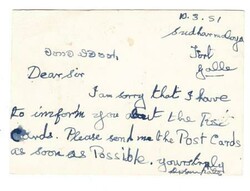 10.3.51
Sudharmaloya
Fort
Galle
Dear Sir
I am sorry that I have
to imform you about the Free
Cards. Please send me the Post Cards
as soon as Possible. yours truly